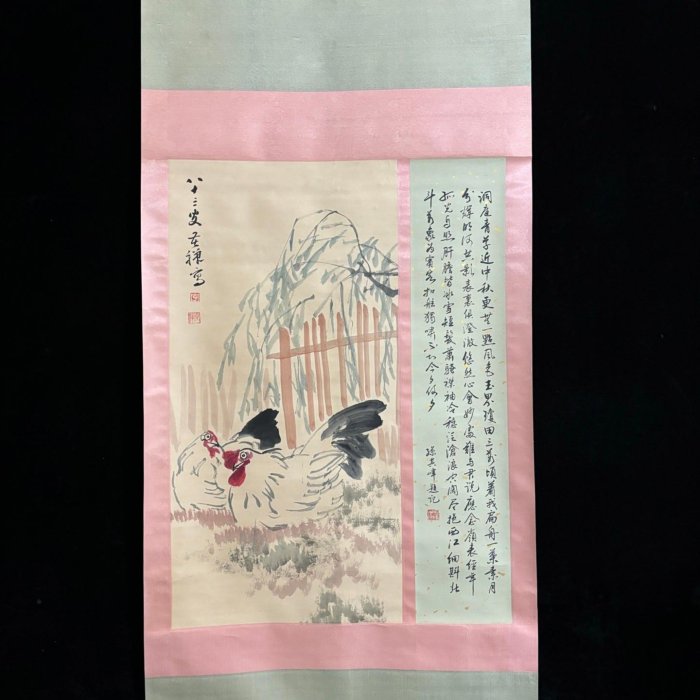 洞庭青草近中秋更無一點風色玉界瓊田三萬頃着我扁舟一葉素月
分輝明河共影表裏俱澄澈悠然心會妙處難與君說應念嶺表經年
孤光自照肝膽皆冰雪短髮蕭騷襟袖冷穩泛滄浪空闊尽挹西江細斟北
斗萬象為賓客扣舷獨嘯不知今夕何夕
孫其峰題記
八十三叟苦禪寫